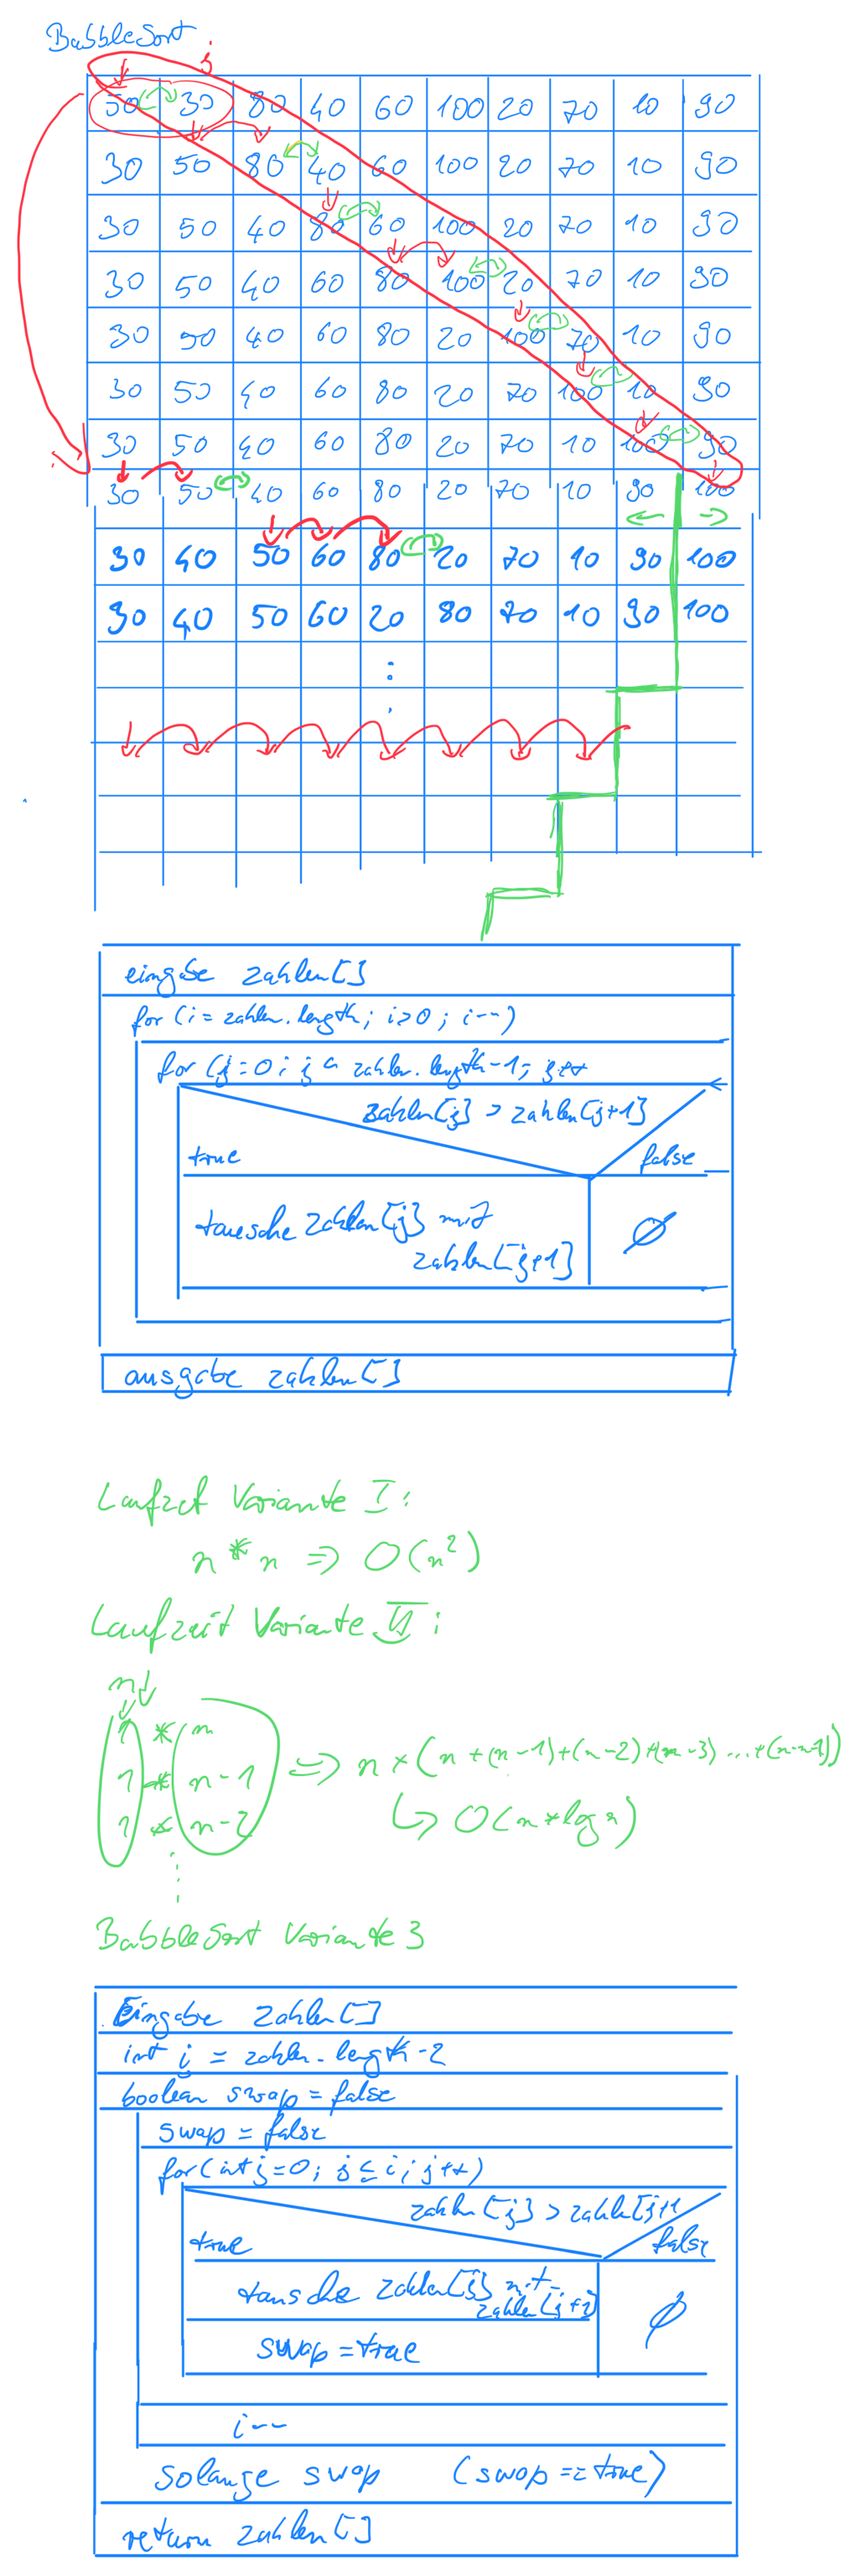 BubbleSort
j
50 30 80 40 60 100 20 70 10 90
30 50 80 40 60 100 20 70 10 90
30 50 40 80 60 100 20 70 10 90
30 50 40 60 80 100 20 70 10 90
30 50 40 60 80 20 100 70 10 90
30 50 40 60 80 20 70 100 10 90
30 50 40 60 80 20 70 10 100 90
30 50 40 60 80 20 70 10 90 100
30 40 50 60 80 20 70 10 90 100
30 40 50 60 20 80 70 10 90 100
eingabe zahlen[]
for (i = zahlen.length; i>0; i--)
for (j=0; j < zahlen.length-1; j++
zahlen[j] > zahlen[j+1]
true false
tausche zahlen[j] mit ∅
zahlen[j+1]
ausgabe zahlen[]
Laufzeit Variante I:
n * n => O(n²)
Laufzeit Variante II:
n
1 * n
1 * n-1 => n * (n+(n-1)+(n-2)+(n-3)...+(n-n-1))
1 * n-2 ↳ O(n*log n)
BubbleSort Variante 3
Eingabe zahlen[]
int i = zahlen.length-2
boolean swap = false
swap = false
for(int j=0; j ≤ i; j++)
zahlen[j] > zahlen[j+1
true false
tausche zahlen[j] mit ∅
zahlen[j+1]
swap = true
i--
solange swap (swap == true)
return zahlen[]